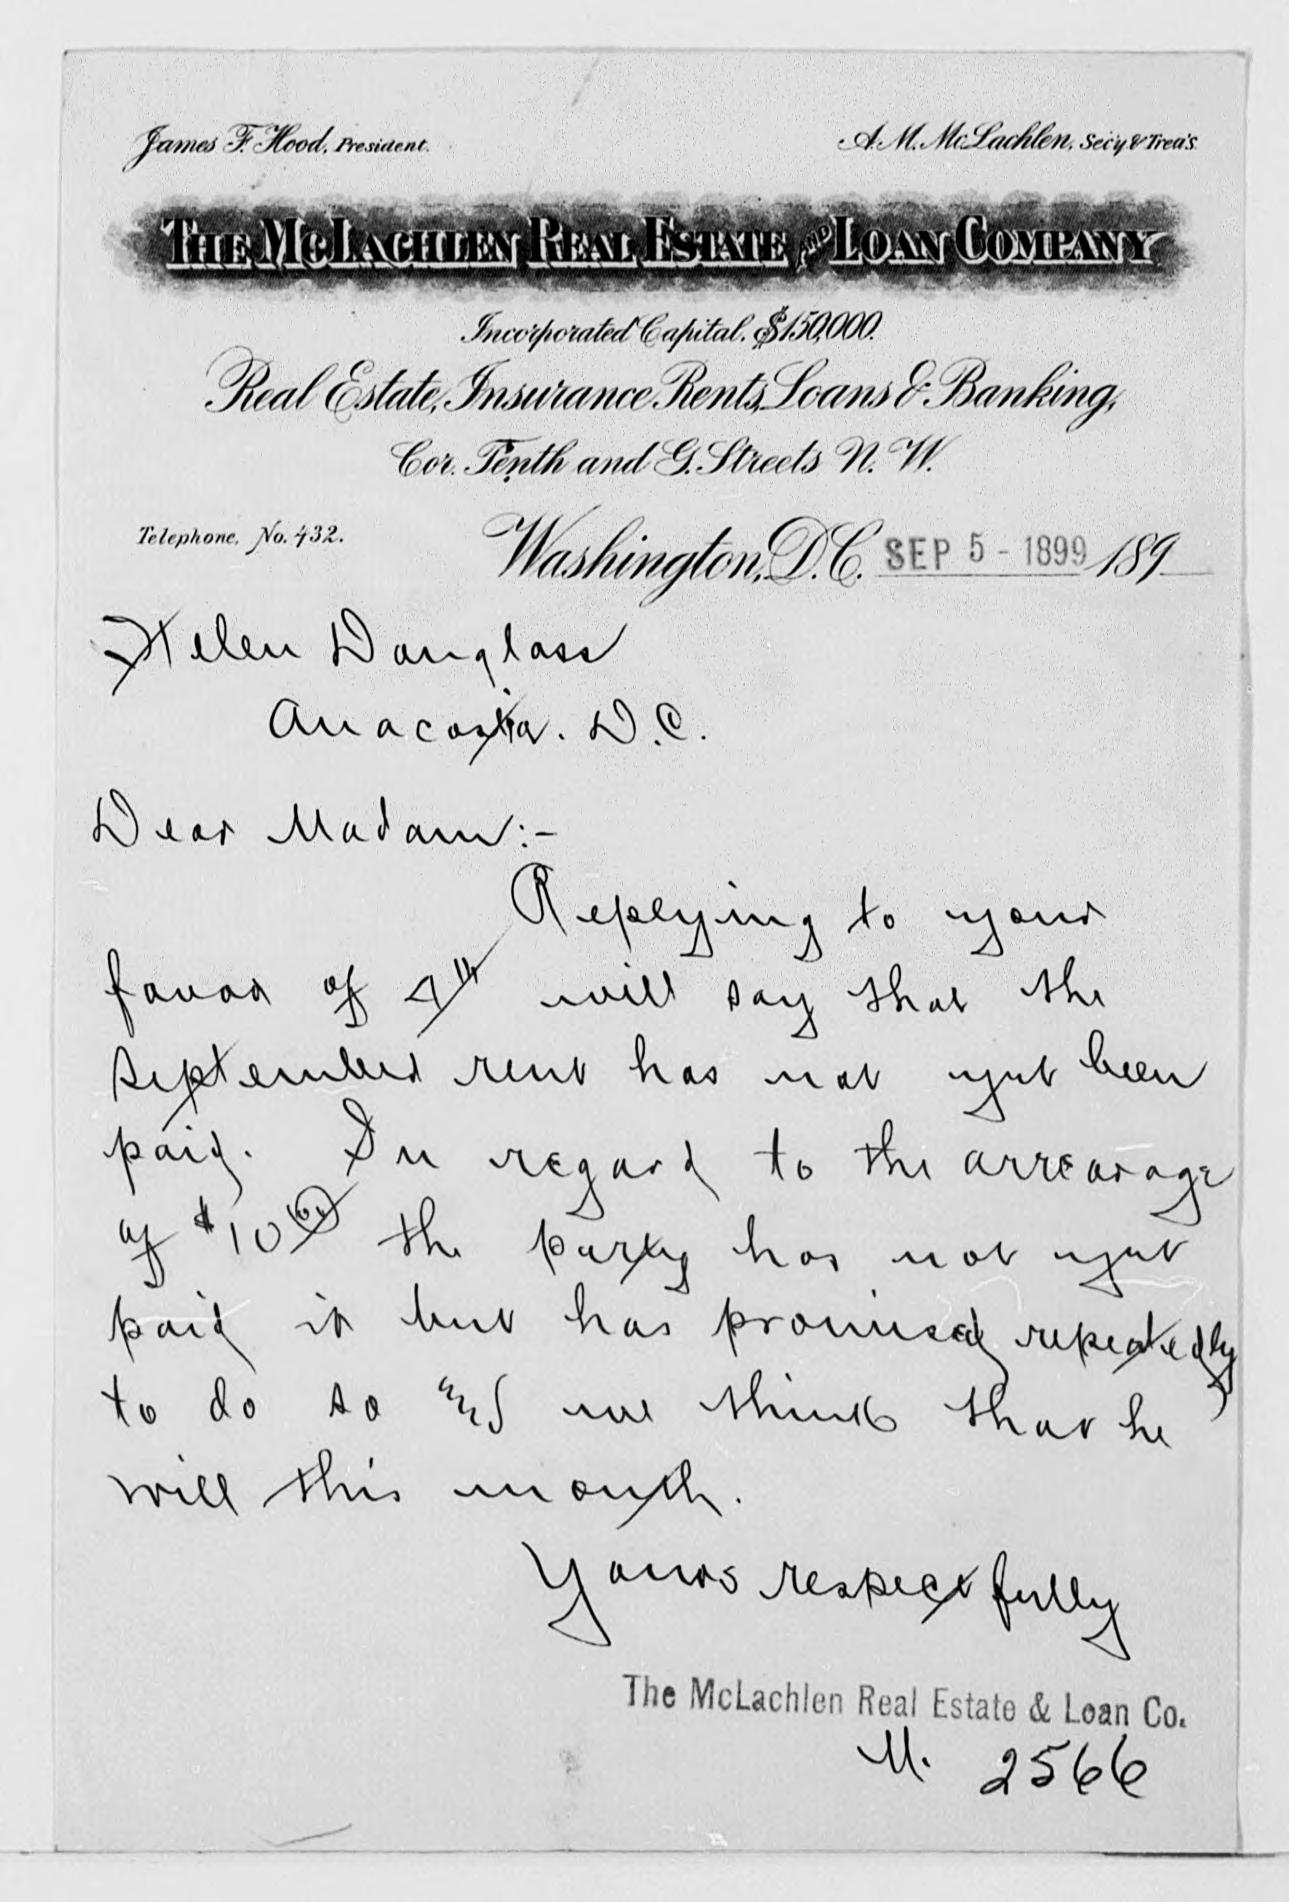 James F. Hood, President.
A. M. McLachlen, Sec'y & Treas.
THE MCLACHLEN REAL ESTATE AND LOAN COMPANY
Incorporated Capital, $150,000.
Real Estate, Insurance, Rents, Loans & Banking,
Cor. Tenth and G. Streets N. W.
Telephone, No. 432.
Washington, D.C. SEP 5 - 1899 189
Helen Douglass
Anacostia. D.C.
Dear Madam:-
Replying to your
favor of 4th will say that the
September rent has not yet been
paid. In regard to the arrearage
of $10 the party has not yet
paid it but has promised repeatedly
to do so and we think that he
will this month.
Yours respectfully
The McLachlen Real Estate & Loan Co.
M. 2566